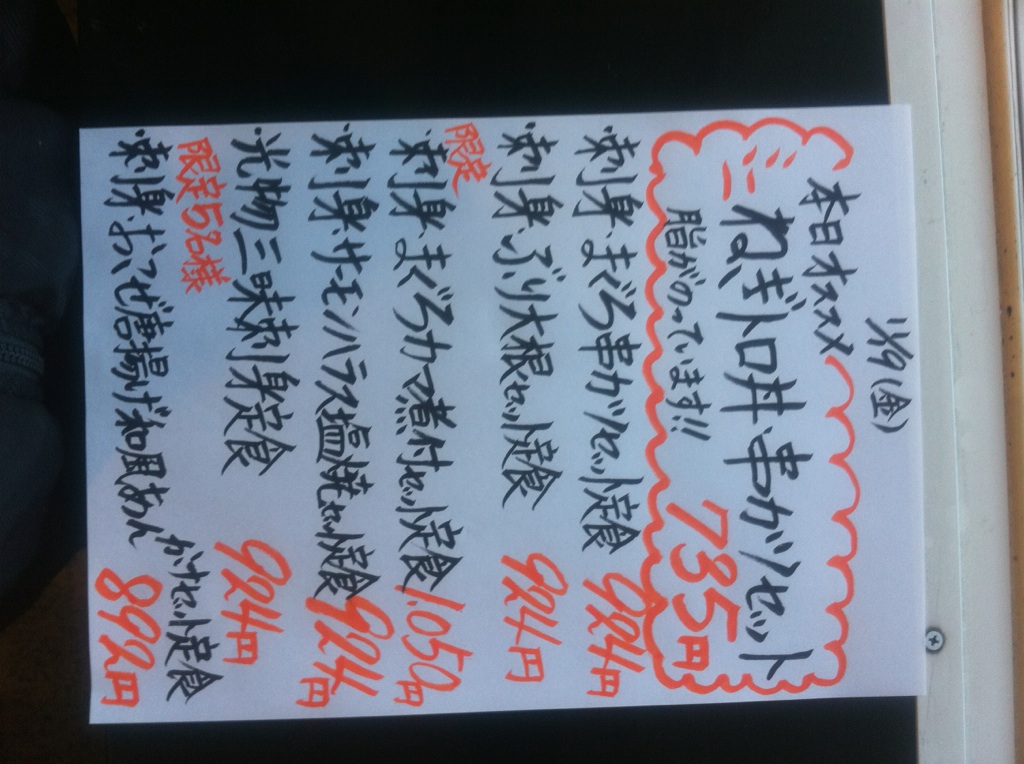 11/9(金)
本日オススメ
ミニねぎトロ丼、串カツセット
脂がのっています!! 735円
・刺身、まぐろ串カツセット定食 924円
・刺身、ぶり大根セット定食 924円
限定
・刺身、まぐろカマ煮付セット定食 1.050円
・刺身、サーモンハラス塩焼セット定食 924円
・光物三昧刺身定食 924円
限定5名様
・刺身、おこぜ唐揚げ和風あん
かけセット定食 892円